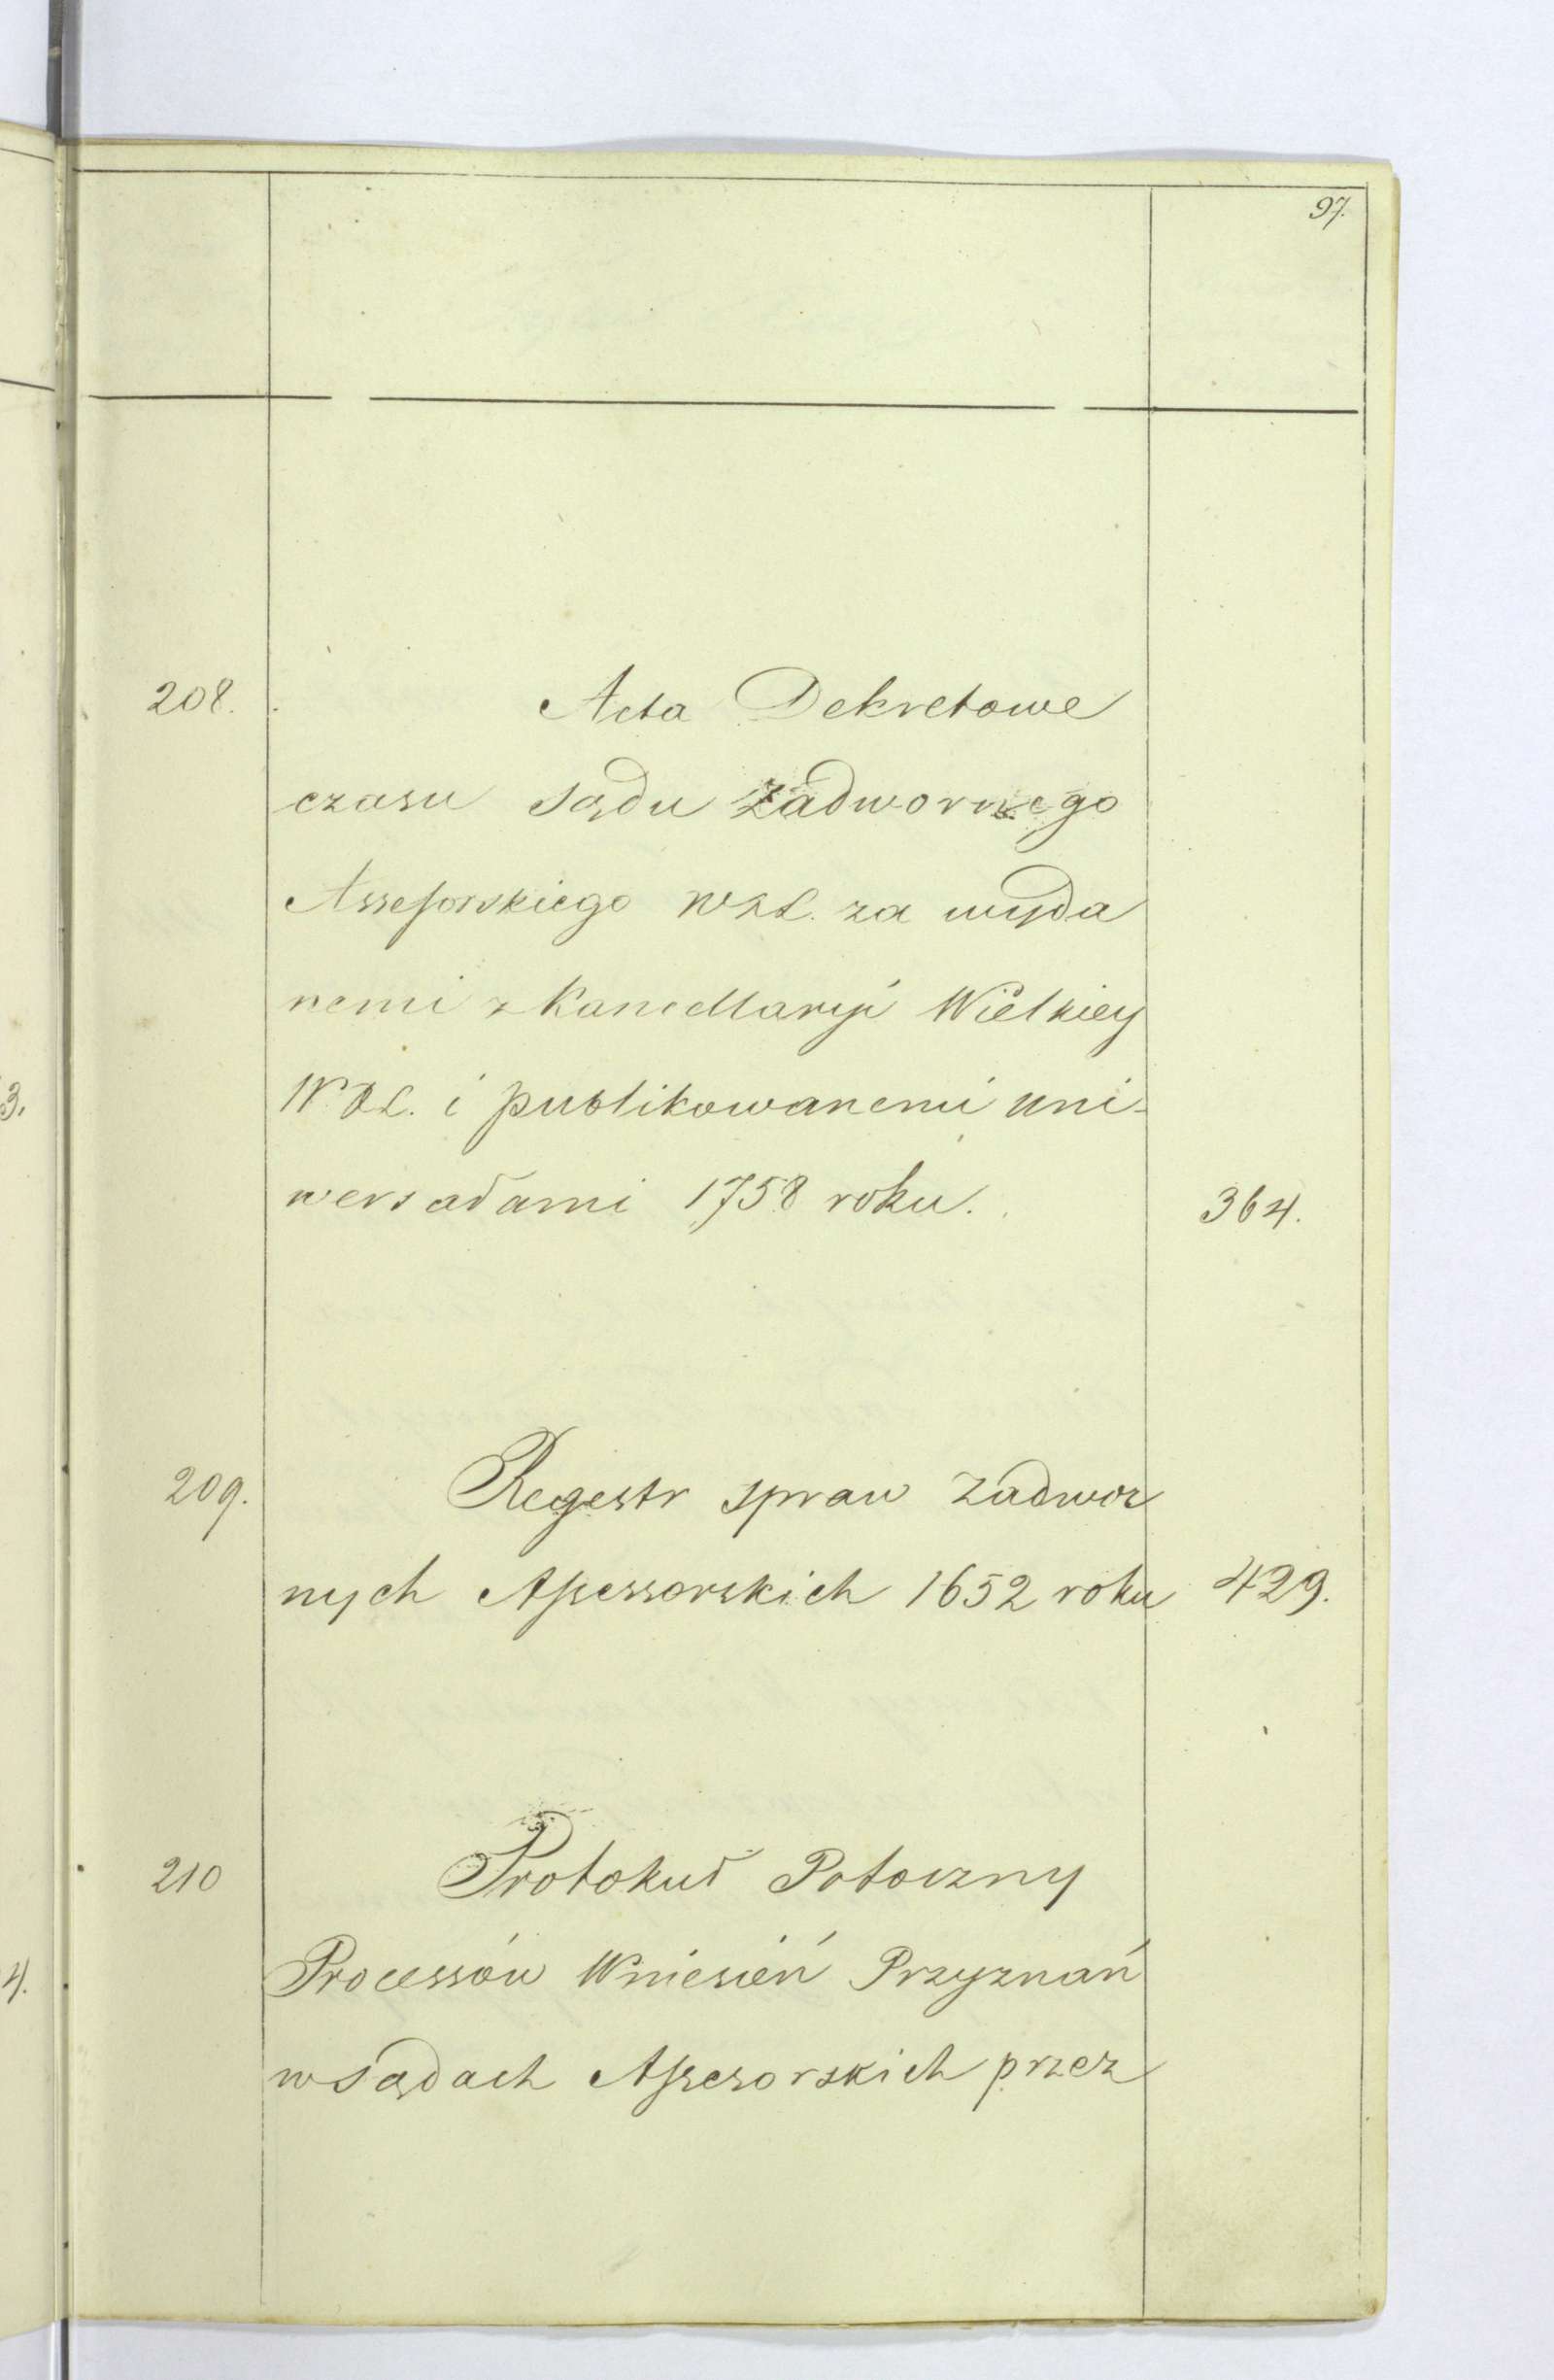 97.
208. Acta Dekretowe
czasu sądu zadwornego
Assessorskiego WXL. za wyda
nemi z Kancellaryi Wielkiey
WXL. i publikowanemi uni-
wersałami 1758 roku. 364.
209. Regestr spraw zadwor
nych Assessorskich 1652 roku 429.
210 Protokuł Potoczny
Processów Wniesień Przyznań
w sądach Assesorskich przez
3.
4.